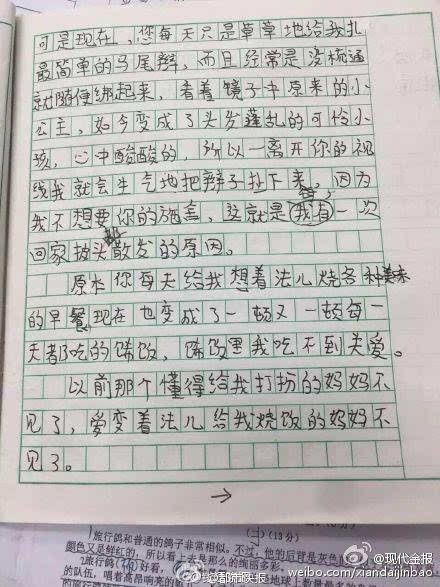 可是现在，您每天只是草草地给我扎
最简单的马尾辫，而且经常是没梳通
就随便绑起来，看着镜子中原来的小
公主，如今变成了头发蓬乱的可怜小
孩，心中酸酸的，所以一离开你的视
线我就会生气地把辫子扯下来，因为
我不想要你的施舍，这就是我有一次
回家披头散发的原因。
原本你每天给我想着法儿烧各种美味
的早餐现在也变成了一顿又一顿每一
天都吃的稀饭，稀饭里我吃不到关爱。
以前那个懂得给我打扮的妈妈不
见了，爱变着法儿给我烧饭的妈妈不
见了。
→
(13分)
旅行鸽和普通的鸽子非常相似。不过，他的后背是灰色
颜色又是鲜红的，所以看上去是那么的绚丽多彩。
旅行鸽 好看，
的队伍，唱着高昂响亮的
地球上数量最多的
@现代金报
weibo.com/xiandaijinbao